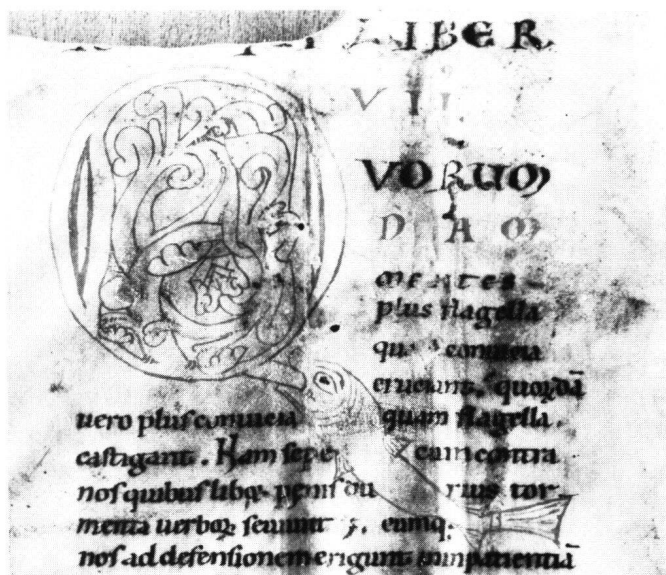 LIBER
VII
VORUM
DAM
mentes
plus flagella
conuicia
cruciant. quorūdā
uero plus conuicia quam flagella.
castigant. Nam sepe cum contra
nos quibus libꝫ penis du rius tor
menta uerboꝝ seuiunt ⁊.
nos ad defensionem erigunt inpatientiā